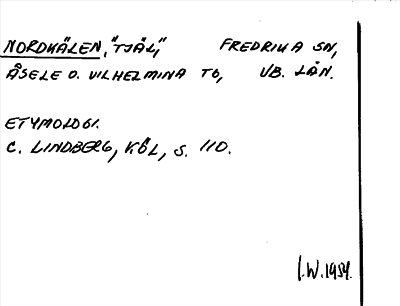 NORDKÄLEN, "TJÄL," FREDRIKA SN,
ÅSELE O. VILHELMINA TG, VB. LÄN.
ETYMOLOGI.
C. LINDBERG, KÖL, S. 110.
I.W. 1954.